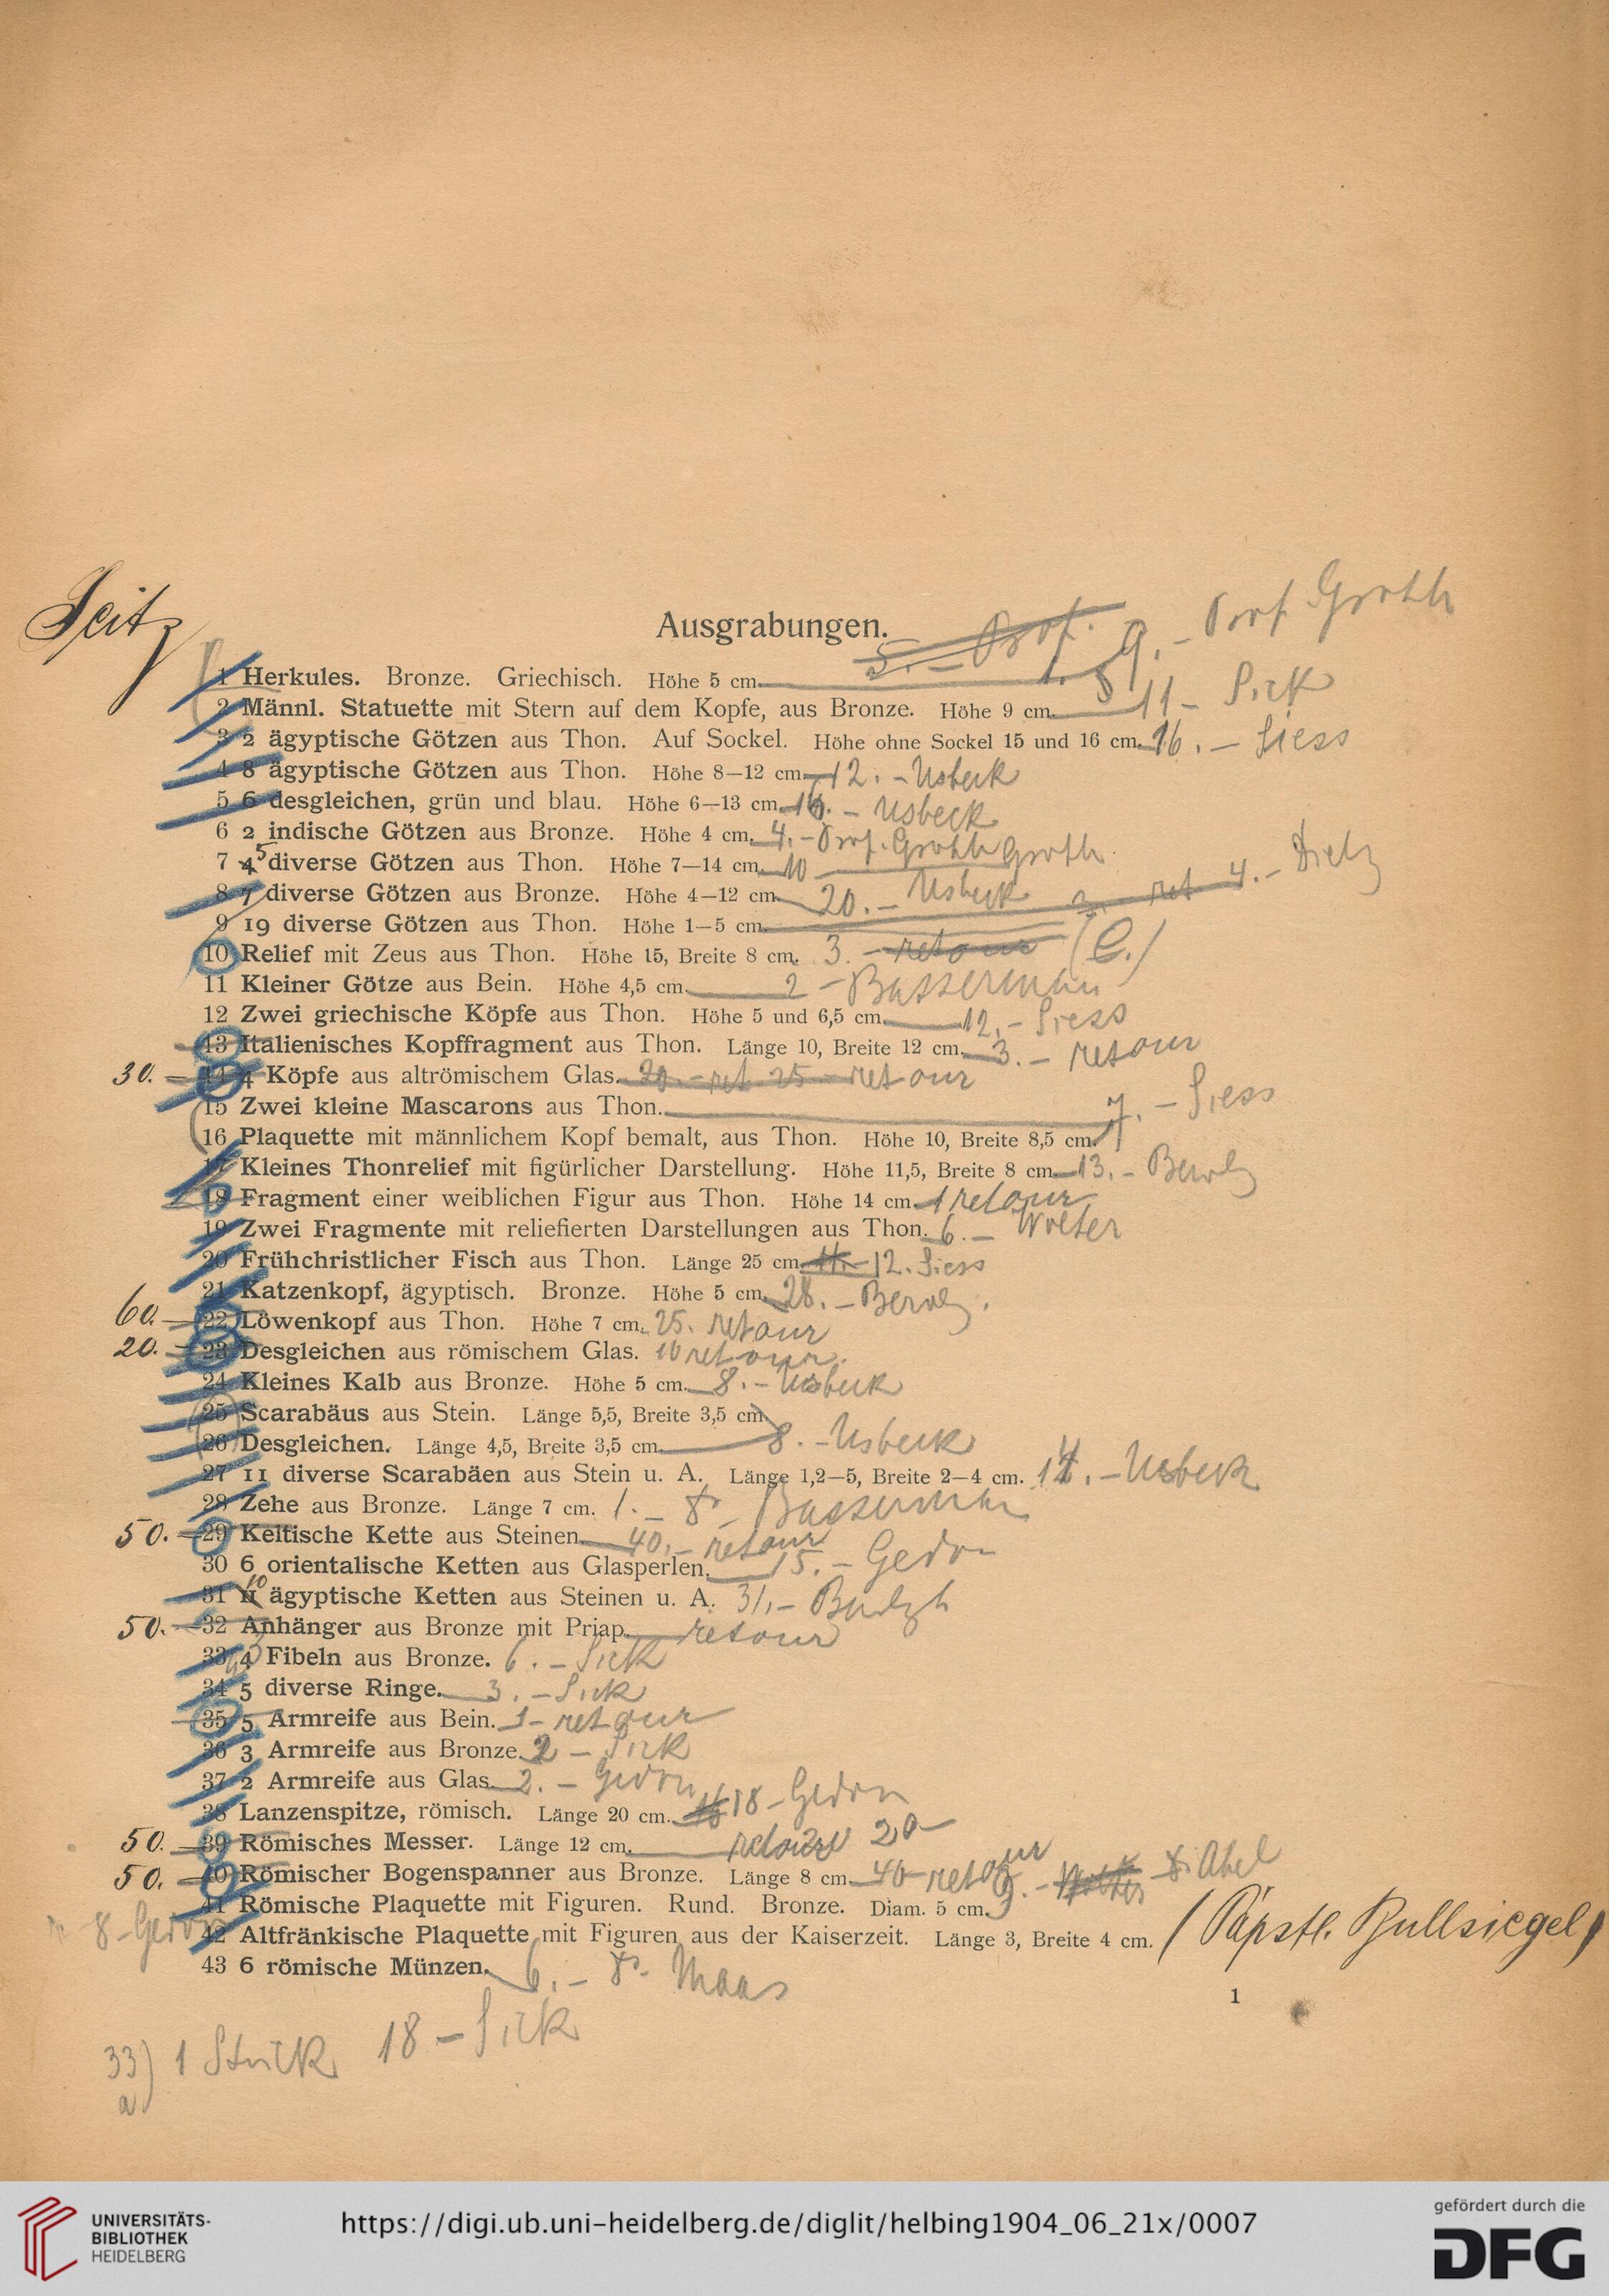 Seitz
Ausgrabungen. 5.— Prof. 9.— Prof Groth
1 Herkules. Bronze. Griechisch. Höhe 5 cm.
2 Männl. Statuette mit Stern auf dem Kopfe, aus Bronze. Höhe 9 cm. 11— Sick
3 2 ägyptische Götzen aus Thon. Auf Sockel. Höhe ohne Sockel 15 und 16 cm. 16.— Siess
4 8 ägyptische Götzen aus Thon. Höhe 8—12 cm. 12.— Usbeck
5 6 desgleichen, grün und blau. Höhe 6—13 cm. — Usbeck
6 2 indische Götzen aus Bronze. Höhe 4 cm. 4.— Prof. Groth
7 4 5 diverse Götzen aus Thon. Höhe 7—14 cm. 10 — Groth
8 7 diverse Götzen aus Bronze. Höhe 4—12 cm. 20.— Usbeck
9 19 diverse Götzen aus Thon. Höhe 1—5 cm. ret 4.— Dietz
10 Relief mit Zeus aus Thon. Höhe 15, Breite 8 cm. 3.— retour (C.)
11 Kleiner Götze aus Bein. Höhe 4,5 cm. 2 — Bassermann
12 Zwei griechische Köpfe aus Thon. Höhe 5 und 6,5 cm. 12.— Siess
13 Italienisches Kopffragment aus Thon. Länge 10, Breite 12 cm. 3.— retour
30.— 14 4 Köpfe aus altrömischem Glas. 20.— ret 25 — retour
15 Zwei kleine Mascarons aus Thon. 7.— Siess
16 Plaquette mit männlichem Kopf bemalt, aus Thon. Höhe 10, Breite 8,5 cm.
17 Kleines Thonrelief mit figürlicher Darstellung. Höhe 11,5, Breite 8 cm. 13.—
18 Fragment einer weiblichen Figur aus Thon. Höhe 14 cm. 1 retour
19 Zwei Fragmente mit reliefierten Darstellungen aus Thon. 6.— Wolter
20 Frühchristlicher Fisch aus Thon. Länge 25 cm. 11.— 12. Siess
21 Katzenkopf, ägyptisch. Bronze. Höhe 5 cm. 28.—
60.— 22 Löwenkopf aus Thon. Höhe 7 cm. 25. retour
20.— 23 Desgleichen aus römischem Glas. 10 retour.
24 Kleines Kalb aus Bronze. Höhe 5 cm. 8.— Usbeck
25 Scarabäus aus Stein. Länge 5,5, Breite 3,5 cm.
26 Desgleichen. Länge 4,5, Breite 3,5 cm. 8.— Usbeck
27 11 diverse Scarabäen aus Stein u. A. Länge 1,2—5, Breite 2—4 cm. — Usbeck
28 Zehe aus Bronze. Länge 7 cm. 1.— Bassermann
50.— 29 Keltische Kette aus Steinen. 40.— retour
30 6 orientalische Ketten aus Glasperlen. 15.— Gedon
31 11 10 ägyptische Ketten aus Steinen u. A. 31.—
50.— 32 Anhänger aus Bronze mit Priap. retour
33 4 Fibeln aus Bronze. 6.— Sick
34 5 diverse Ringe. 3.— Sick
35 5 Armreife aus Bein. 1— retour
36 3 Armreife aus Bronze. 2 — Sick
37 2 Armreife aus Glas. 2.— Gedon
38 Lanzenspitze, römisch. Länge 20 cm. 18 — Gedon
50.— 39 Römisches Messer. Länge 12 cm. retour 20—
50.— 40 Römischer Bogenspanner aus Bronze. Länge 8 cm. 40 — retour
41 Römische Plaquette mit Figuren. Rund. Bronze. Diam. 5 cm. 9.— Wolter Dr. Abel
8— Gedon 42 Altfränkische Plaquette mit Figuren aus der Kaiserzeit. Länge 3, Breite 4 cm. (Päpstl. Bullsiegel)
43 6 römische Münzen. 6.— Dr. Maas
1
33) 1 Stück 18 — Sick
a)
UNIVERSITÄTS-
BIBLIOTHEK
HEIDELBERG
https://digi.ub.uni-heidelberg.de/diglit/helbing1904_06_21x/0007
gefördert durch die
DFG